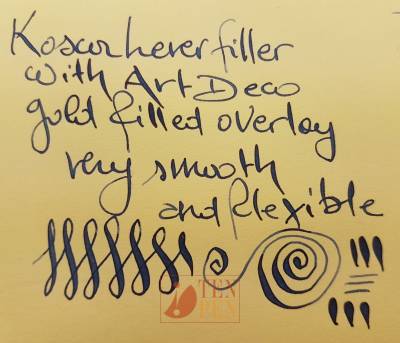 Koscar lever filler
with Art Deco
gold filled overlay
very smooth
and flexible
TEN
PEN